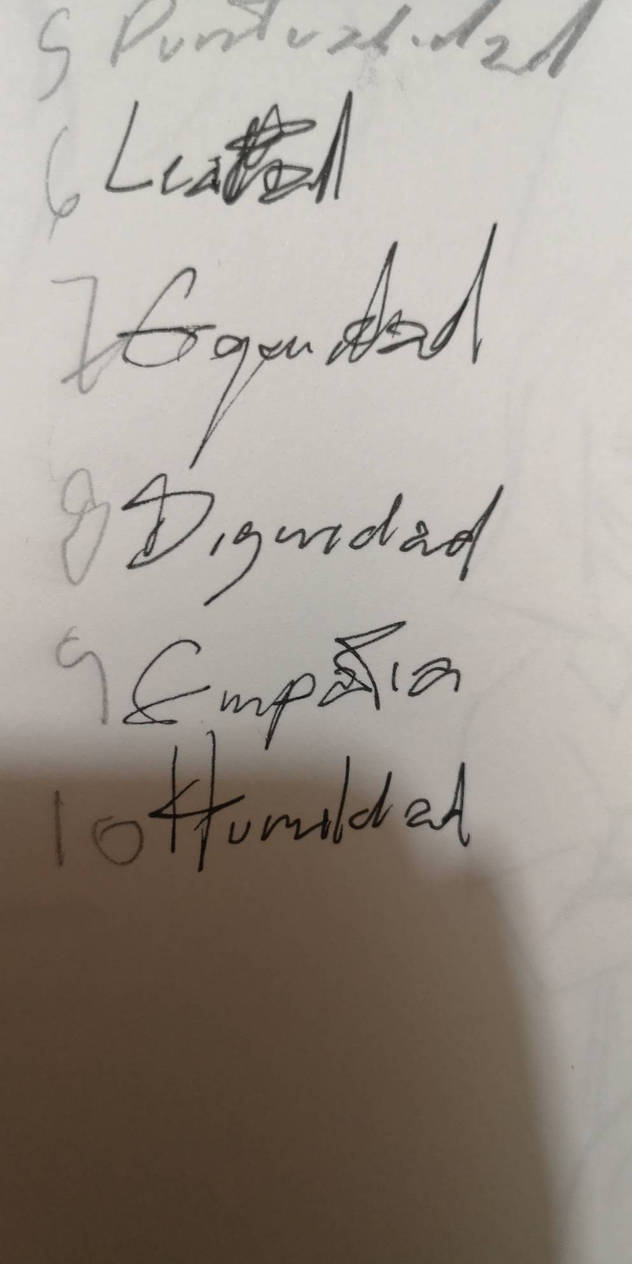 5 Puntualidad
6 Lealtad
7 Equidad
8 Dignidad
9 Empatia
10 Humildad